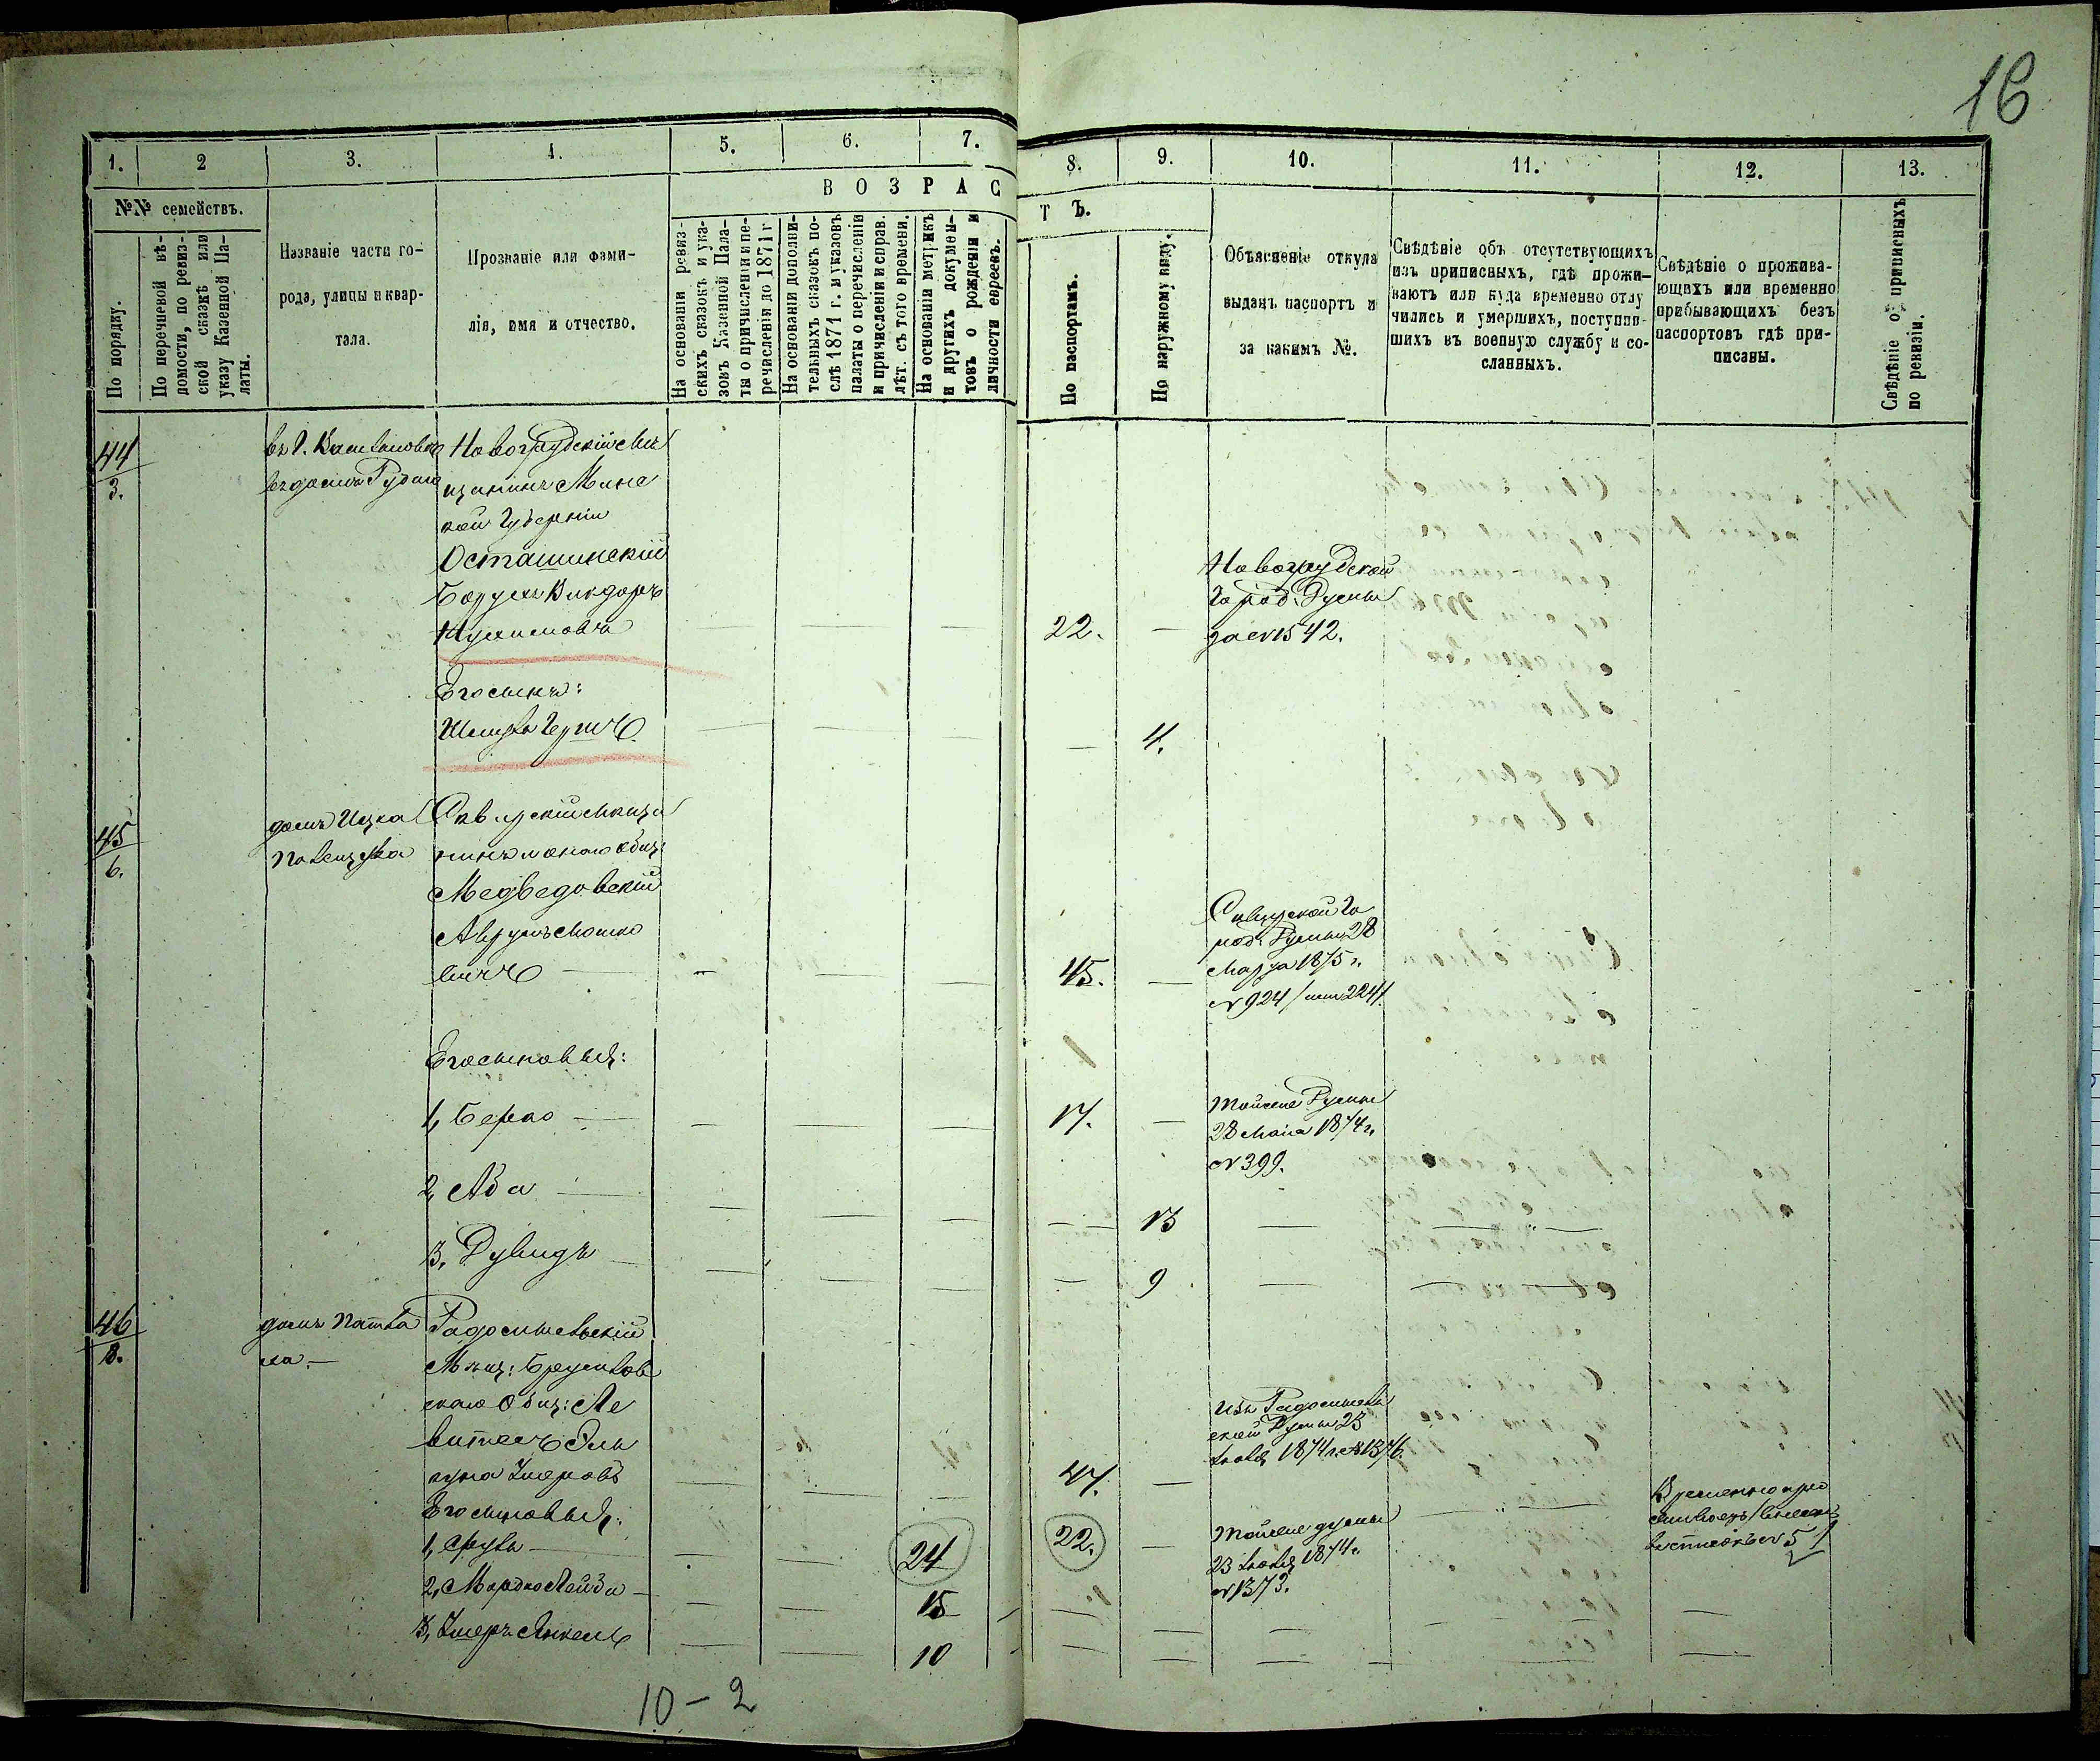 16
1.
2
3.
4.
5.
6.
7.
8.
9.
10.
11.
12.
13.
№№ семействъ.
В О З Р А С
Т Ъ.
По порядку.
По перечневой вѣ-
домости, по ревиз-
ской сказкѣ или
указу Казенной Па-
латы.
Названіе части го-
рода, улицы и квар-
тала.
Прозваніе или фами-
лія, имя и отчество.
На основаніи ревиз-
скихъ сказокъ и ука-
зовъ Казенной Пала-
ты о причисленіи и пе-
речисленія до 1871 г
На основаніи дополни-
тельныхъ сказокъ по-
слѣ 1871 г. и указовъ
палаты о перечисленіи
и причисленіи и справ.
лѣт. съ того времени.
На основаніи метрикъ
и другихъ докумен-
товъ о рожденіи и
личности евреевъ.
По паспортамъ.
По наружному виду.
Объясненіе откуда
выданъ паспортъ и
за какимъ №.
Свѣдѣніе объ отсутствующихъ
изъ приписныхъ, гдѣ прожи-
ваютъ или куда временно отлу
чились и умершихъ, поступив-
шихъ въ военную службу и со-
сланныхъ.
Свѣдѣніе о прожива-
ющихъ или временно
прибывающихъ безъ
паспортовъ гдѣ при-
писаны.
Свѣдѣніе о приписныхъ
по ревизіи.
44
3.
въ
въ домѣ
Новогрудскій мѣ
щанинъ Минс
кой Губерніи
Осташинскій
Борухъ
22. —
Новогрудской
Город: Думы
за № 1542.
Его сынъ:
4.
45
6.
домъ Ицка
Сквирскій мѣща
нинъ общ:
Медведовскій
Аврумъ Мошко
вичъ
45. —
Сквирской Го
род: Думы 28
Марта 1875 г.
№ 924
Его сыновья:
1, Берко —
17. —
Той же Думы
28 Мая 1874 г.
№ 399.
2, Аба —
13
3, Дувидъ —
9
46
8.
домъ
ха. —
Радомысльскій
Мѣщ:
скаго Общ: Ле
47. —
Изъ Радомысль
ской Думы 23
1874 г. № 1376.
Его сыновья:
1, Сруль —
24
22. —
Той же думы
23 1874 г.
№ 1373.
Временно
№ 5
2, Мордко Лейба —
15
3, Янкель
10
10 – 2